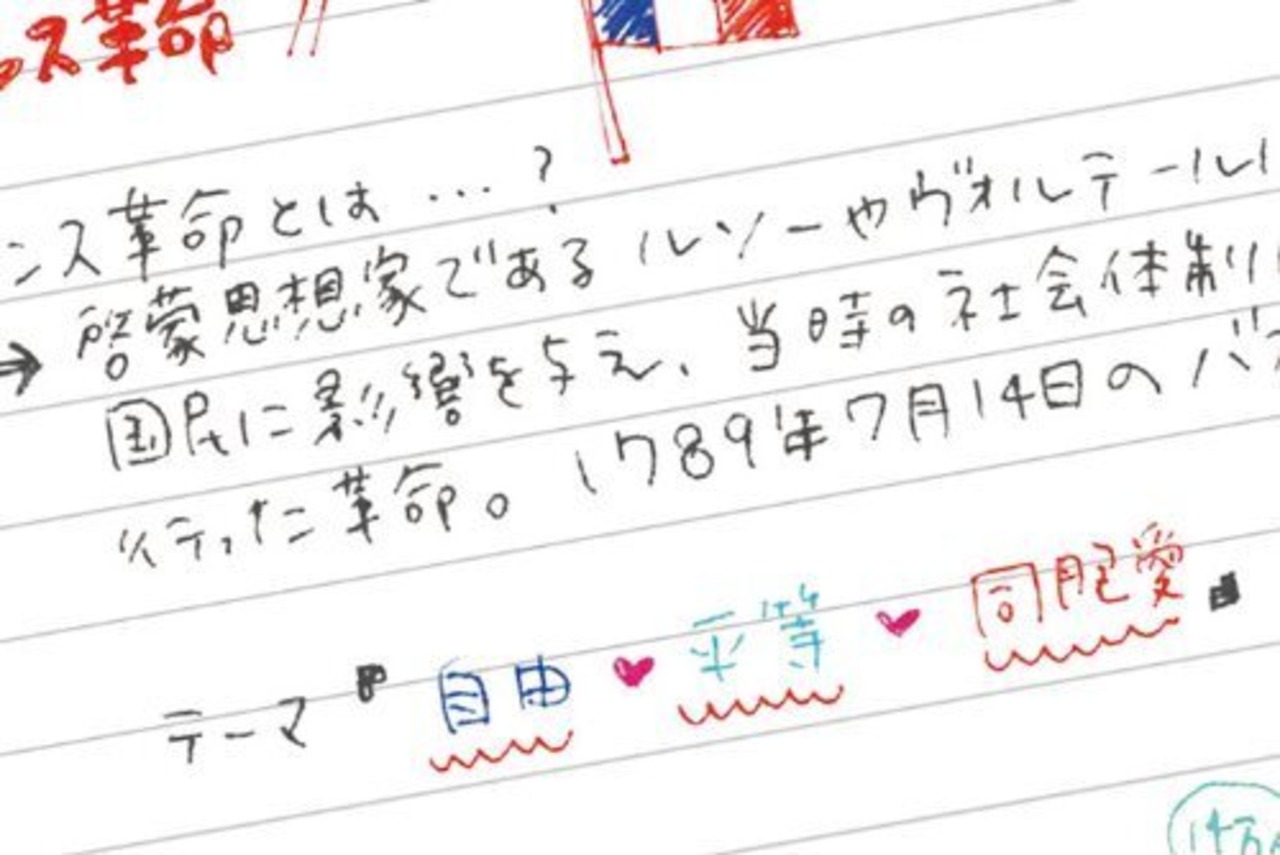 ンス革命
ンス革命とは…?
→ 啓蒙思想家であるルソーやヴォルテール
国民に影響を与え、当時の社会体制
行った革命。1789年7月14日のバス
テーマ『自由♥平等♥同胞愛』